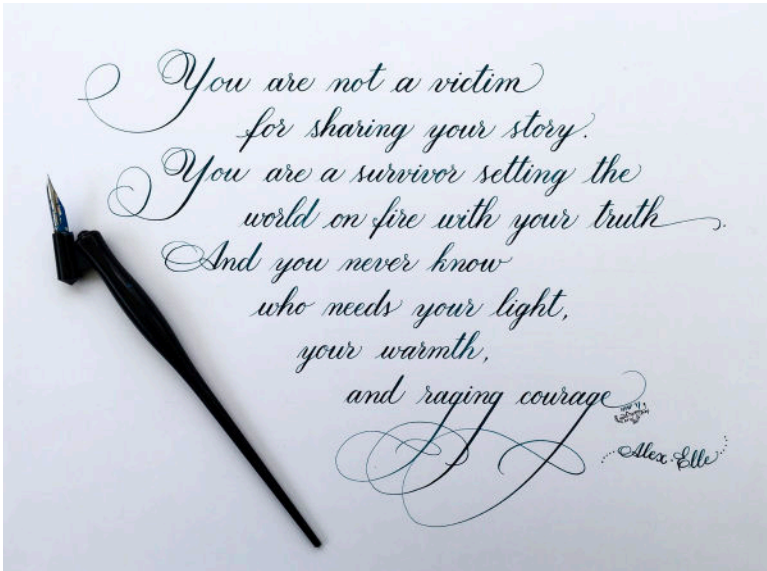 You are not a victim
for sharing your story.
You are a survivor setting the
world on fire with your truth.
And you never know
who needs your light,
your warmth,
and raging courage
Alex Elle